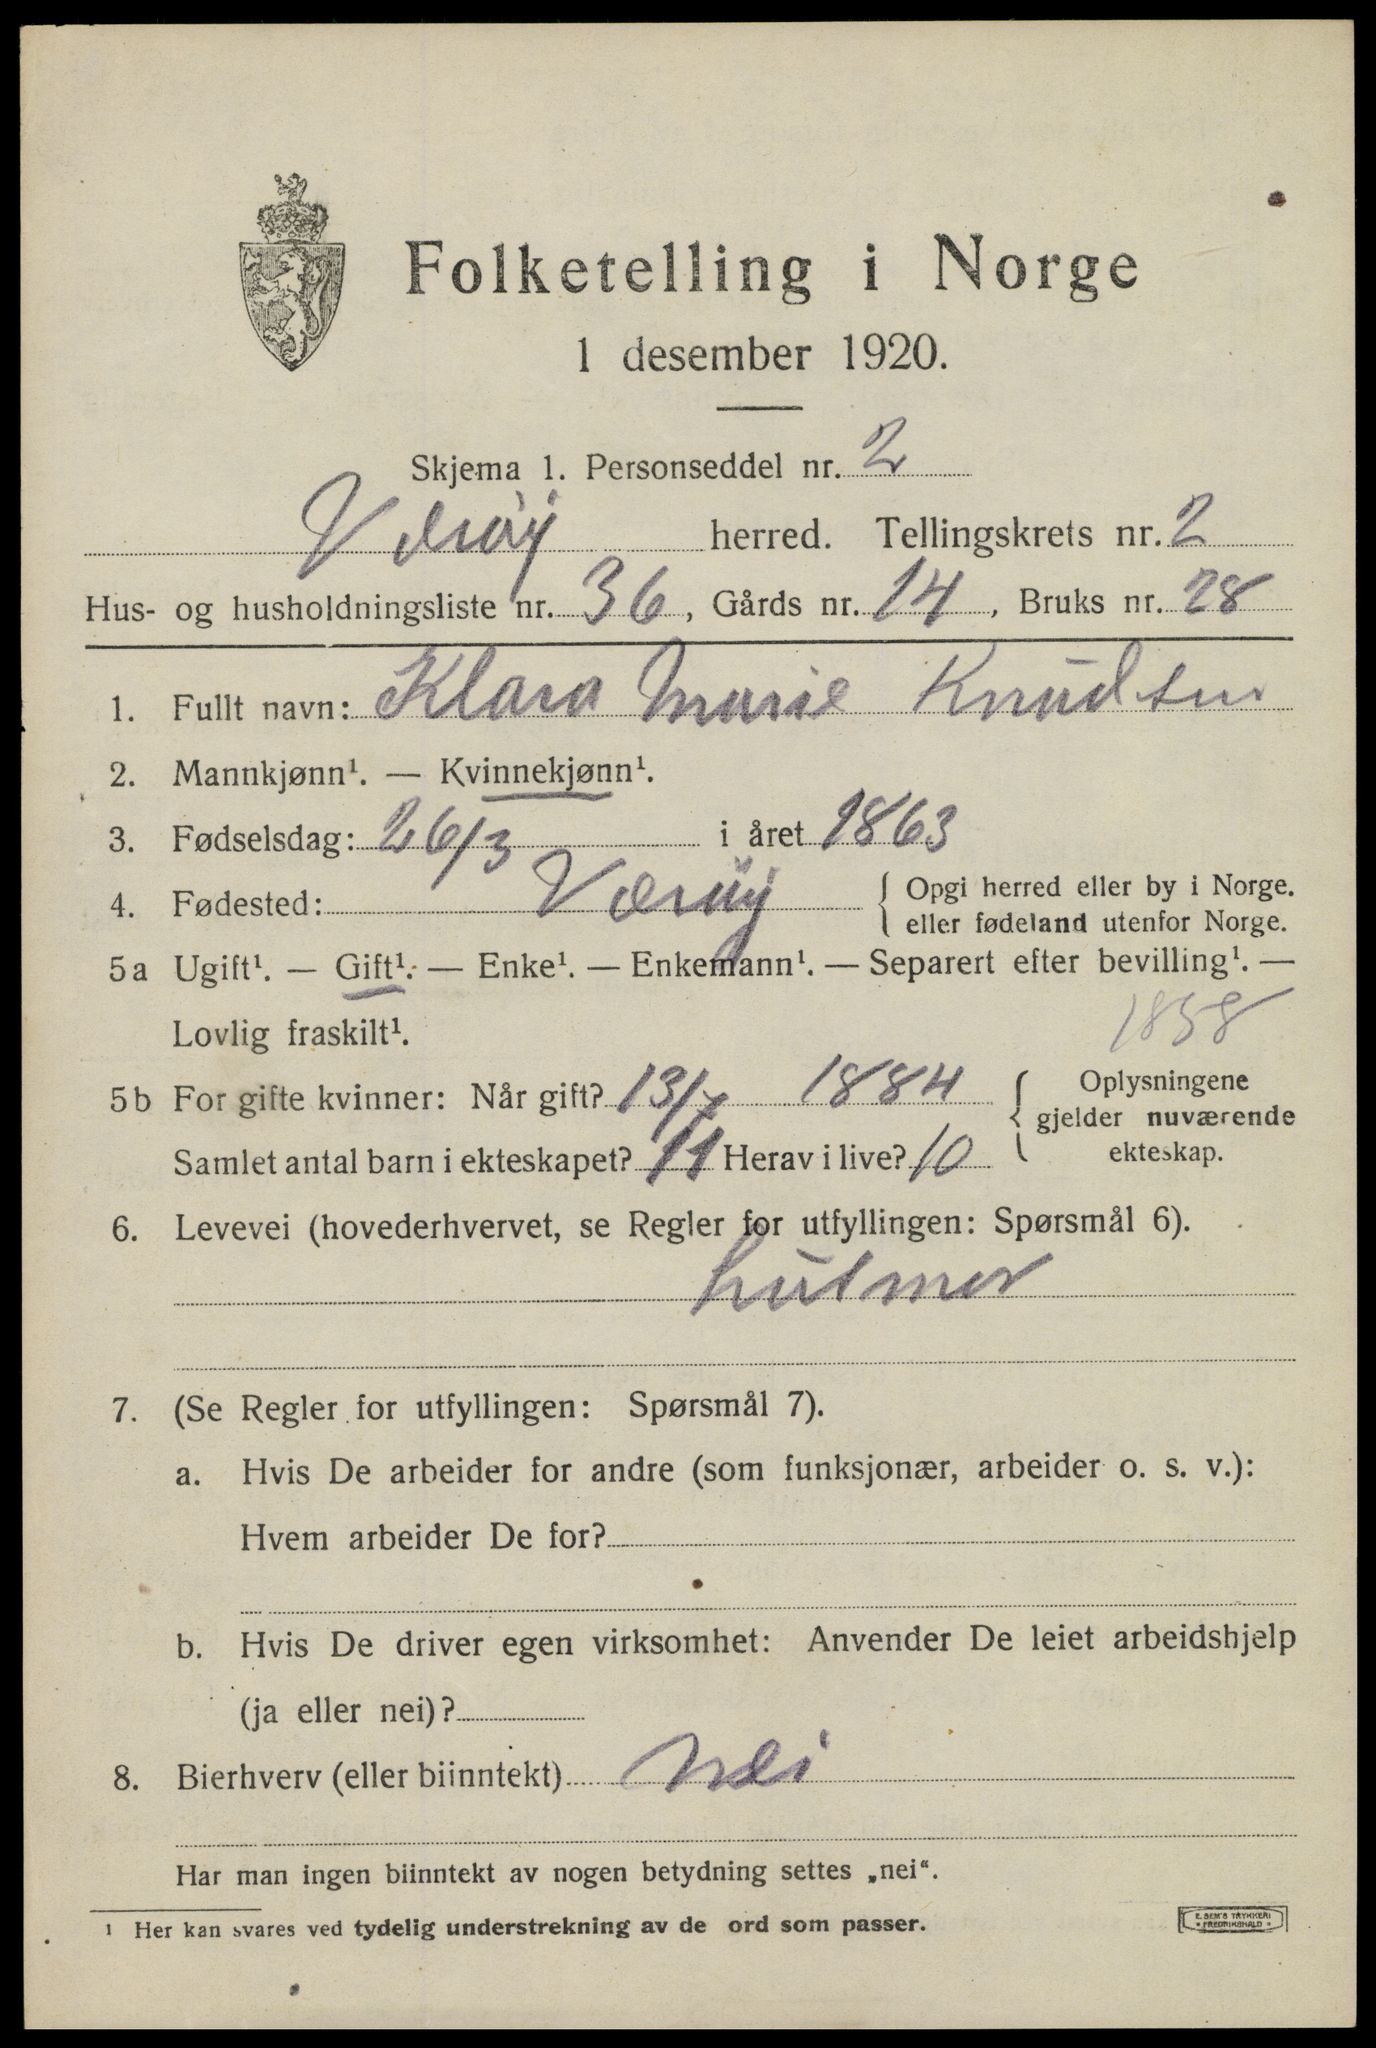 Folketelling i Norge
1 desember 1920.
Skjema 1. Personseddel nr. 2
Værøy herred. Tellingskrets nr. 2
Hus- og husholdningsliste nr. 36, Gårds nr. 14, Bruks nr. 28
1. Fullt navn: Klara Marie Knudsen
2. Mannkjønn¹. — Kvinnekjønn¹.
3. Fødselsdag: 26/3 i året 1863
4. Fødested: Værøy { Opgi herred eller by i Norge.
eller fødeland utenfor Norge.
5a Ugift¹. — Gift¹. — Enke¹. — Enkemann¹. — Separert efter bevilling¹. —
Lovlig fraskilt¹. 1858
5b For gifte kvinner: Når gift? 13/7 1884 { Oplysningene
gjelder nuværende
Samlet antal barn i ekteskapet? 11 Herav i live? 10 ekteskap.
6. Levevei (hovederhvervet, se Regler for utfyllingen: Spørsmål 6).
husmor
7. (Se Regler for utfyllingen: Spørsmål 7).
a. Hvis De arbeider for andre (som funksjonær, arbeider o. s. v.):
Hvem arbeider De for?
b. Hvis De driver egen virksomhet: Anvender De leiet arbeidshjelp
(ja eller nei)?
8. Bierhverv (eller biinntekt) Nei
Har man ingen biinntekt av nogen betydning settes „nei“.
¹ Her kan svares ved tydelig understrekning av de ord som passer.
E. SEM'S TRYKKERI
• FREDRIKSHALD •